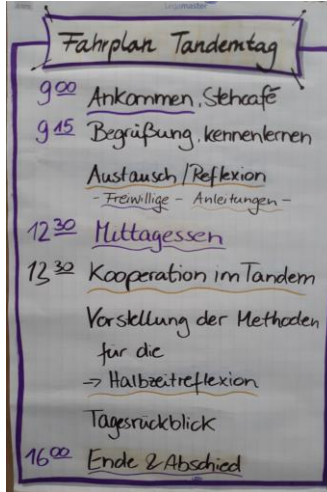 Legamaster
Fahrplan Tandemtag
9 00 Ankommen, Stehcafé
9 15 Begrüßung, kennenlernen
Austausch / Reflexion
- Freiwillige - Anleitungen -
12 30 Mittagessen
13 30 Kooperation im Tandem
Vorstellung der Methoden
für die
→ Halbzeitreflexion
Tagesrückblick
16 00 Ende & Abschied